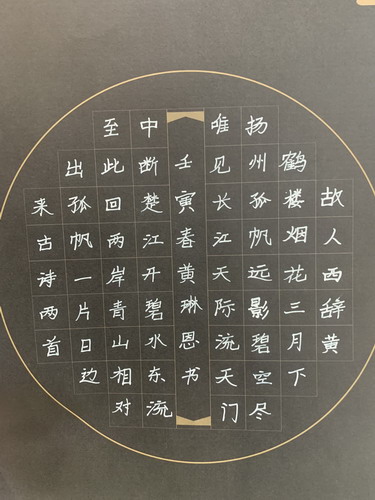 故人西辞黄
鹤楼烟花三月下
扬州孤帆远影碧空尽
唯见长江天际流天门
中断楚江开碧水东流
至此回两岸青山相对
出孤帆一片日边
来古诗两首
壬寅春黄琳恩书